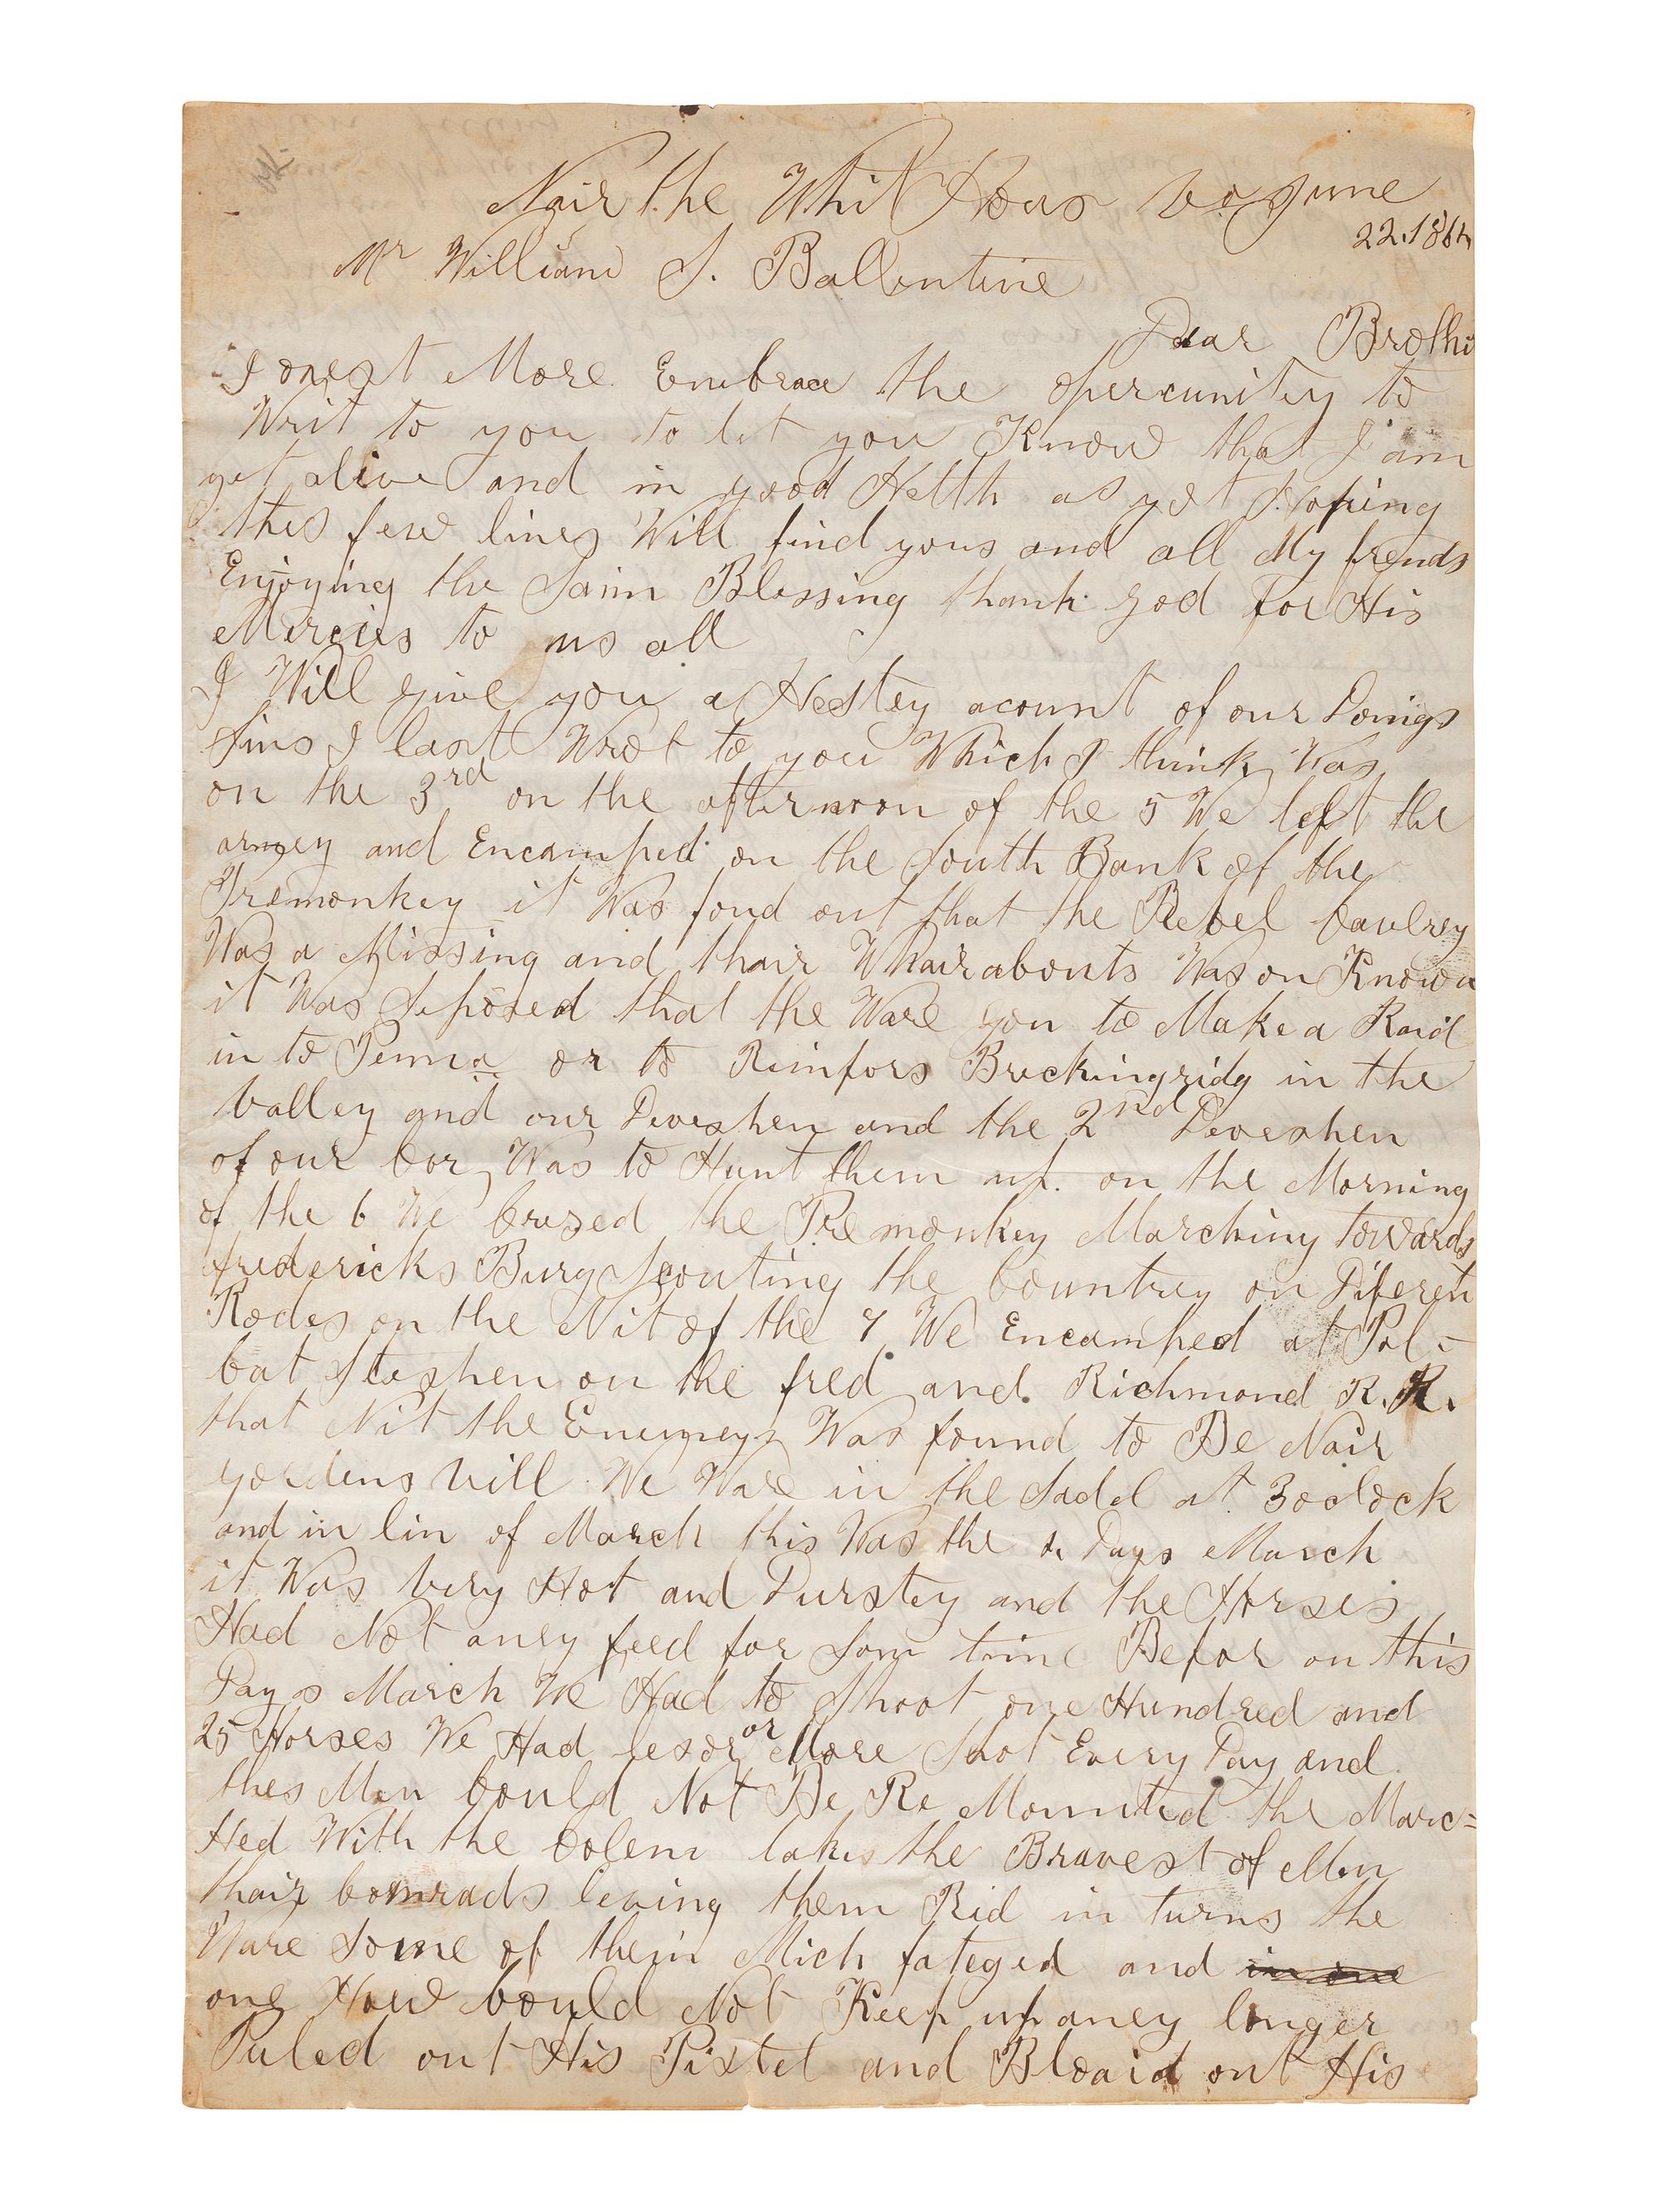 Nair the Whit Hous Va June
22. 1864
Mr William J. Ballentine
Dear Brother
I onest More Embrace the opercunity to
Writ to you to let you Know that I am
yet alive and in good Helth as yet Hoping
thes few lines Will find yous and all My frends
Enjoying the Saim Blessing thank god for His
Mercies to us all
I Will give you a Hestey acount of our Doings
Sins I last Wrot to you Which I think Was
on the 3rd on the afternoon of the 5 We left the
armey and Encamped on the South Bank of the
Premonkey it Was foud out that the Rebel Cavelrey
Was a Missing and thair Whairabouts Was on Known
it Was Suposed that the Ware gon to Make a Raid
in to Penna or to Reinfors Breckingridg in the
Valley and our Deveshen and the 2nd Deveshen
of our Cor Was to Hunt them up. on the Morning
of the 6 We Crosed the Premonkey Marching towards
fredericks Burg Scouting the Country on Diferent
Rodes on the Nit of the 7 We Encamped at Pol-
cat Steshen on the fred and Richmond R.R.
that Nit the Enemey Was found to Be Nair
gordens vill We Ware in the Sadel at 3 oclock
and in lin of March this Was the Days March
it Was Very Hot and Durstey and the Horses
Had Not aney feed for Som time Befor on this
Days March We Had to Shoot one Hundred and
25 Horses We Had les or or More Shot Every Day and
thes Men Could Not Be Re Mounted the Marc=
Hed With the Colem takes the Bravest of Men
thair Comrads leving them Rid in turns the
Ware Some of them Mich fateged and in one
one How Could Not Keep up aney longer
Puled out His Pistel and Bloaid out His